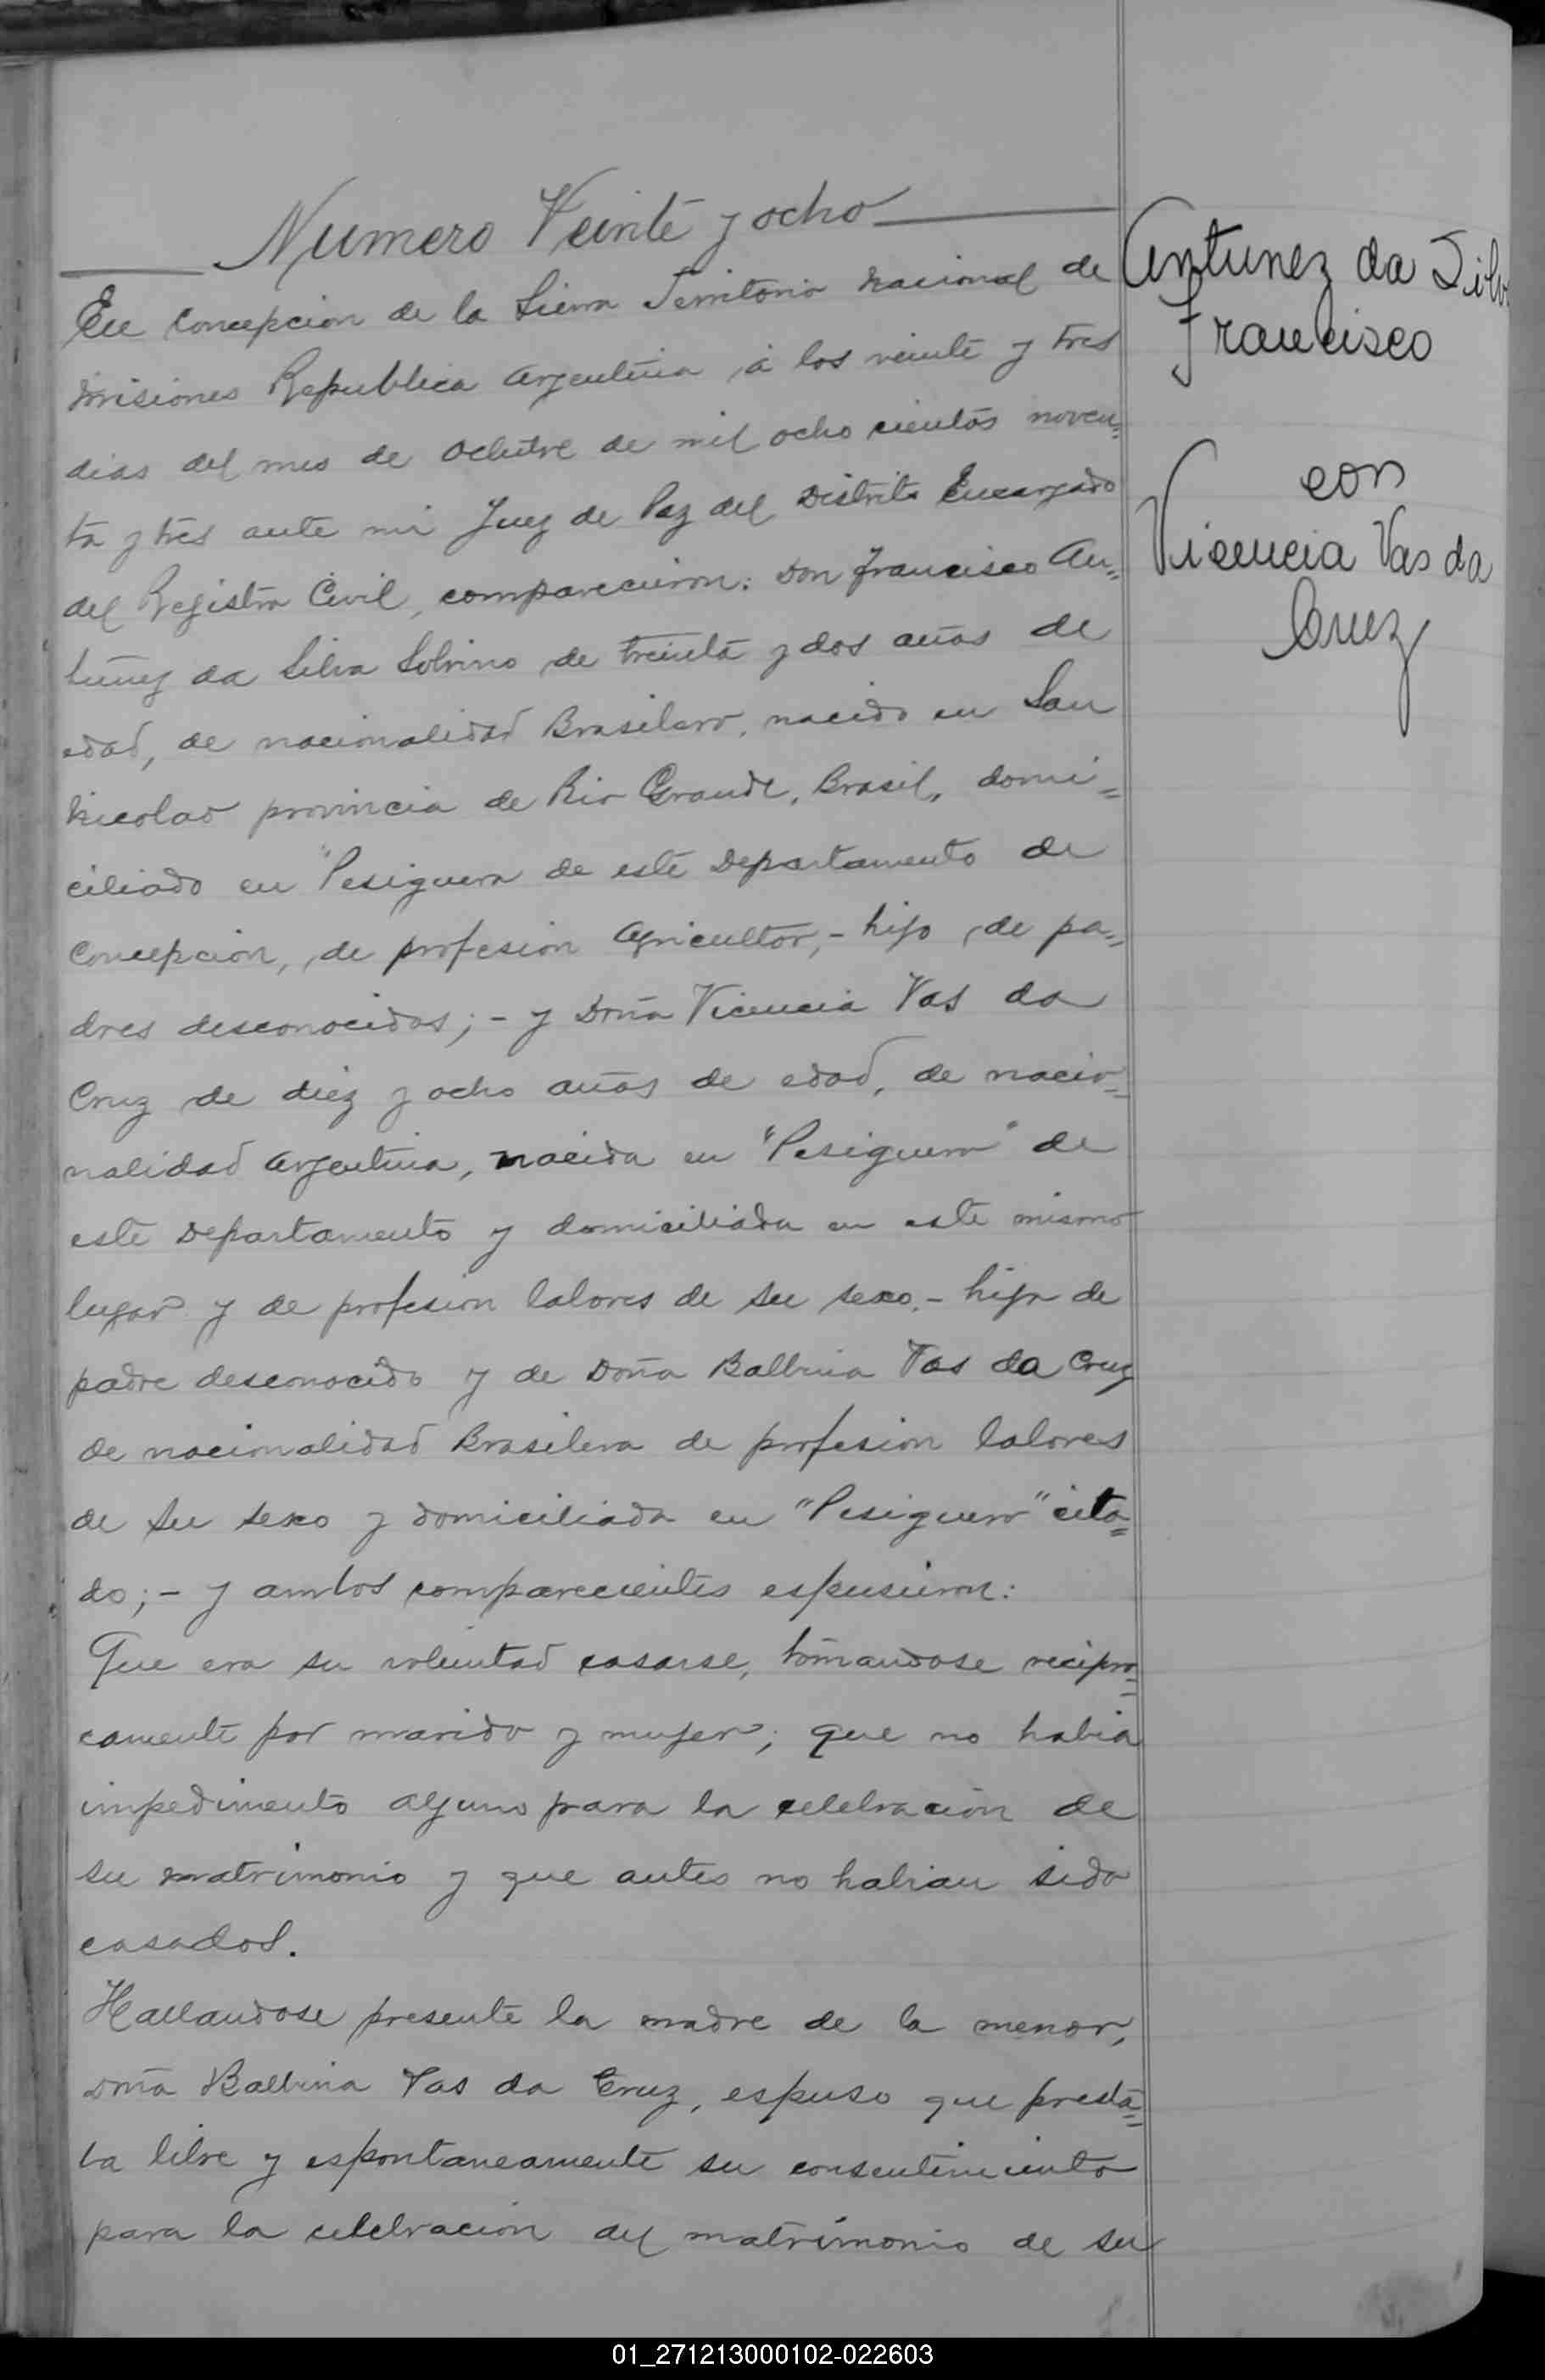 Numero Veinte y ocho
En Concepcion de la Sierra Territorio Nacional de
Misiones Republica Argentina á los veinte y tres
dias del mes de Octubre de mil ocho cientos noven=
ta y tres ante mi Juez de Paz del Distrito Encargado
del Registro Civil, comparecieron: Don Francisco An=
tunez da Silva Sobrino de treinta y dos años de
edad, de nacionalidad Brasilero, nacido en San
Nicolao provincia de Rio Grande, Brasil, domi=
ciliado en "Pesiguero de este Departamento de
Concepcion, de profesion Agricultor,- hijo de pa=
dres desconocidos;- y Doña Vicencia Vas da
Cruz de diez y ocho años de edad, de nacio=
nalidad Argentina, nacida en "Pesiguero" de
este Departamento y domiciliada en este mismo
lugar y de profesion labores de su sexo.- hija de
padre desconocido y de Doña Balbina Vas da Cruz
de nacionalidad Brasilera de profesion labores
de su sexo y domiciliada en "Pesiguero" cita=
do;- y ambos comparecientes espusieron:
Que era su voluntad casarse, tomandose recipro=
camente por marido y mujer; que no habia
impedimento alguno para la celebracion de
su matrimonio y que antes no habian sido
casados.
Hallandose presente la madre de la menor,
Doña Balbina Vas da Cruz, espuso que presta=
ba libre y espontaneamente su consentimiento
para la celebracion del matrimonio de su
Antunez da Silva
Francisco
con
Vicencia Vas da
Cruz
01_271213000102-022603